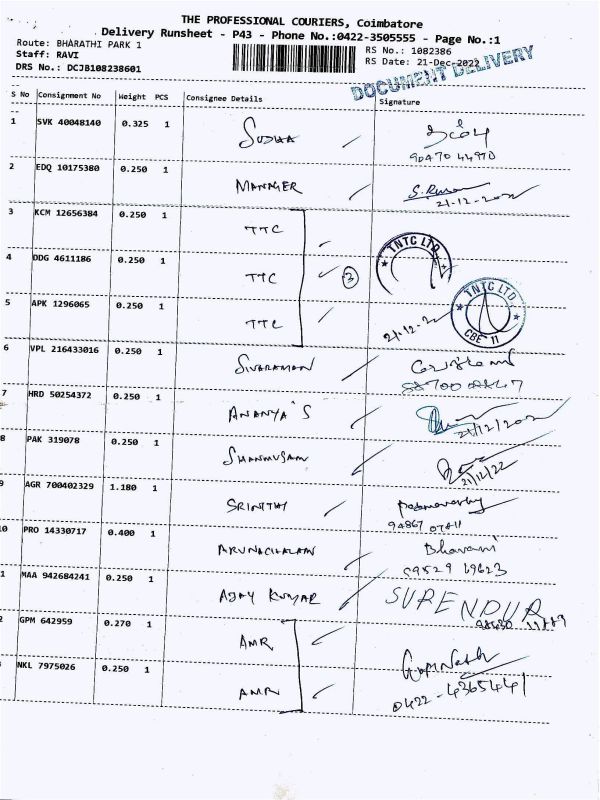 THE PROFESSIONAL COURIERS, Coimbatore
Delivery Runsheet - P43 - Phone No.:0422-3505555 - Page No.:1
Route: BHARATHI PARK 1
Staff: RAVI
DRS No.: DCJB108238601
RS No.: 1082386
RS Date: 21-Dec-2022
DOCUMENT DELIVERY
S No Consignment No Weight PCS Consignee Details Signature
1 SVK 40048140 0.325 1 SUDHA
90470 44970
2 EDQ 10175380 0.250 1 MANAGER
21-12-2022
3 KCM 12656384 0.250 1 TTC
TNTC LTD
4 DDG 4611186 0.250 1 TTC 3
TNTC LTD
CBE-11
5 APK 1296065 0.250 1 TTC
6 VPL 216433016 0.250 1 SIVARAMAN
7 HRD 50254372 0.250 1 ANANYA'S
21/12/2022
8 PAK 319078 0.250 1 SHANMUGAM
21/12/22
9 AGR 700402329 1.180 1 SRINITHI
94867 07411
0 PRO 14330717 0.400 1 ARUNACHALAM Bhavani
89529 69623
1 MAA 942684241 0.250 1 AJAY KUMAR SURENDUR
2 GPM 642959 0.270 1 AMR
NKL 7975026 0.250 1 AMR Gopinath
0422-4365441